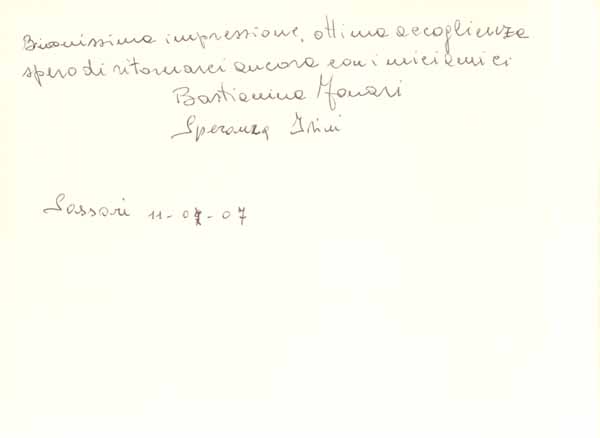 Buonissima impressione, ottima accoglienza
spero di ritornarci ancora con i miei amici
Bastianina
Speranza
Sassari 11-07-07